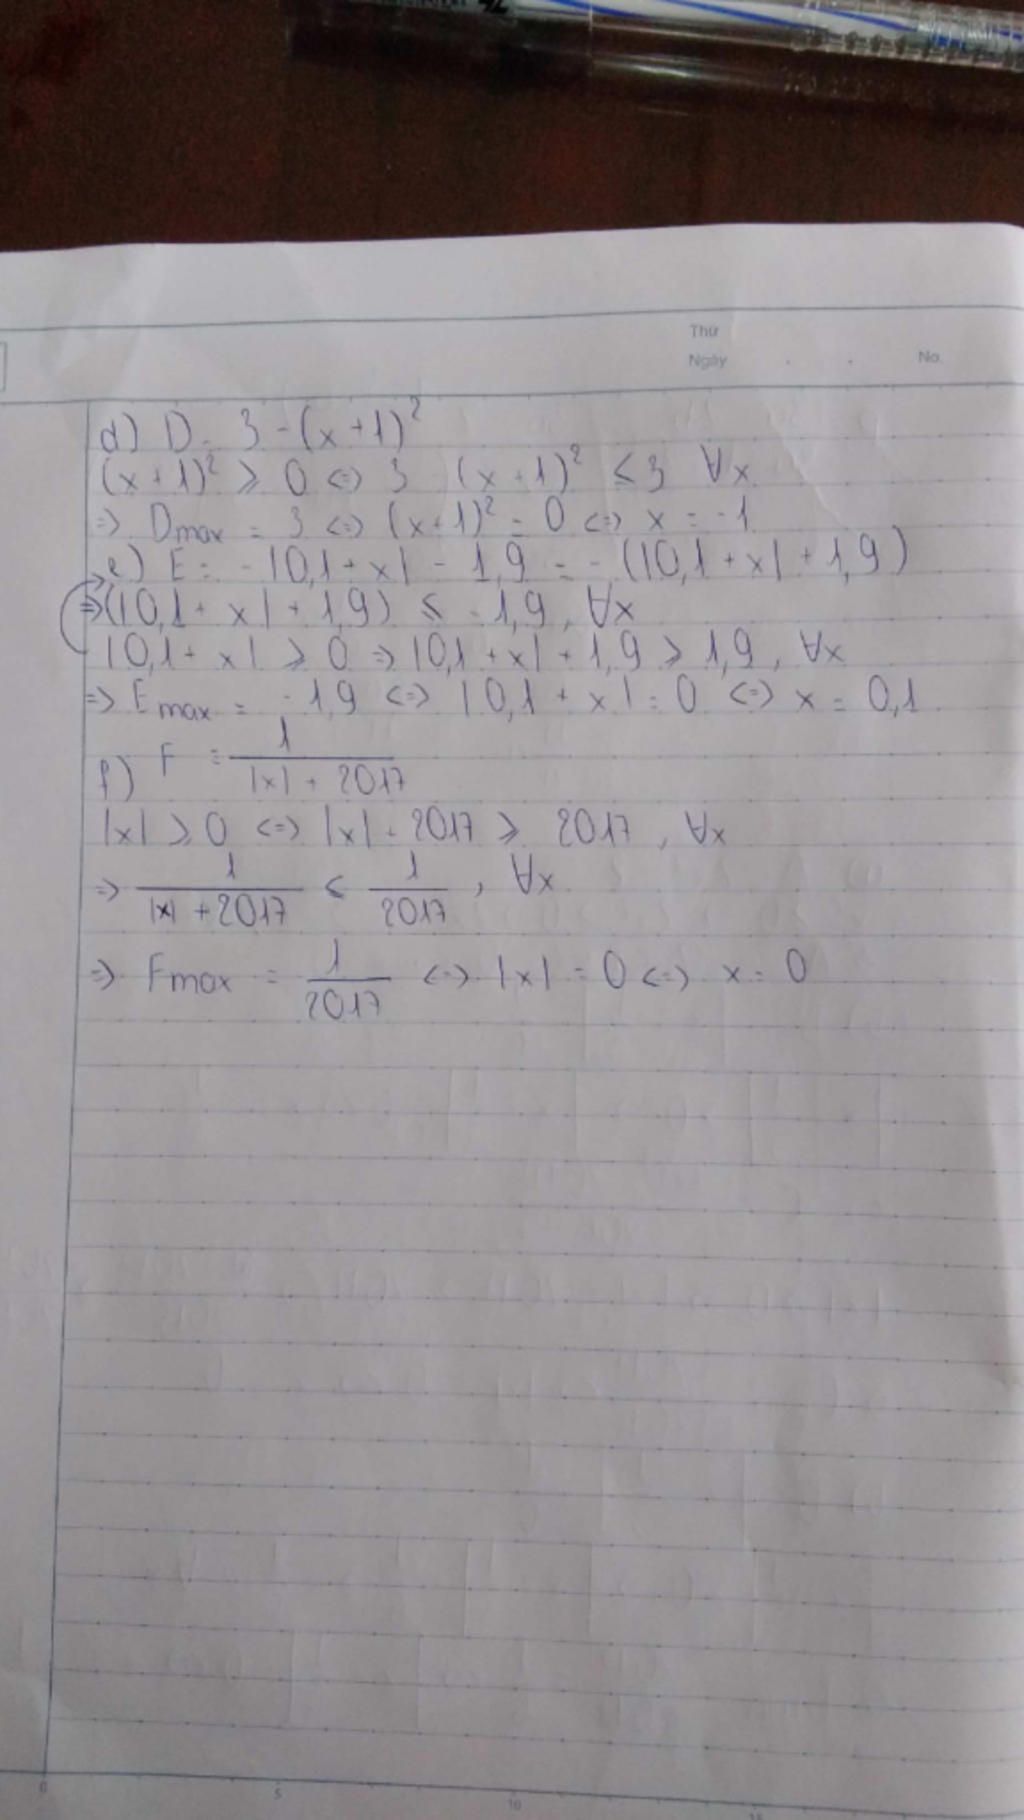 Thứ
Ngày . . No.
d) D = 3 - (x + 1)²
(x + 1)² ≥ 0 <=> 3 - (x + 1)² ≤ 3 ∀x
=> Dmax = 3 <=> (x+1)² = 0 <=> x = -1
e) E = - |0,1 + x| - 1,9 = - (|0,1 + x| + 1,9)
=> (|0,1 + x| + 1,9) ≤ -1,9, ∀x
|0,1 + x| ≥ 0 => |0,1 + x| + 1,9 ≥ 1,9, ∀x
=> Emax = -1,9 <=> |0,1 + x| = 0 <=> x = 0,1
f) F = 1/(|x| + 2017)
|x| ≥ 0 <=> |x| + 2017 ≥ 2017, ∀x
=> 1/(|x| + 2017) ≤ 1/2017, ∀x
=> Fmax = 1/2017 <=> |x| = 0 <=> x = 0
0 5 10 15